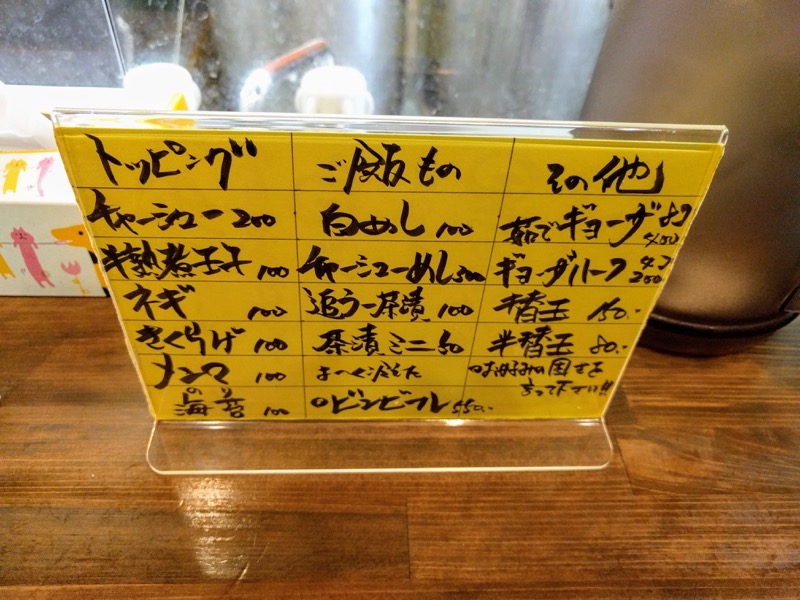 トッピング
チャーシュー 200
半熟煮玉子 100
ネギ 100
きくらげ 100
メンマ 100
のり
海苔 100
ご飯もの
白めし 100
チャーシューめし 300
追う茶漬 100
茶漬ミニ 50
ビンビール 550.-
その他
茹でギョーザ 8コ
400
ギョーザハーフ 4コ
200
替玉 150.-
半替玉 80.-
お好みの固さを
言って下さい!!